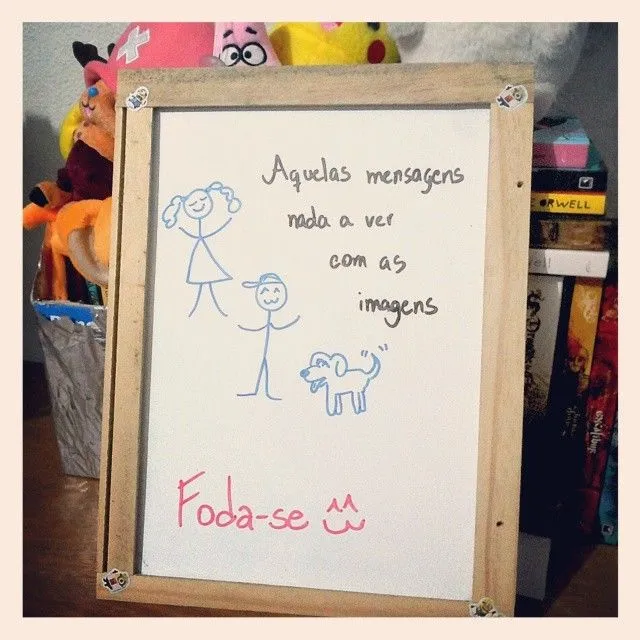 Aquelas mensagens
nada a ver
com as
imagens
Foda-se
ORWELL